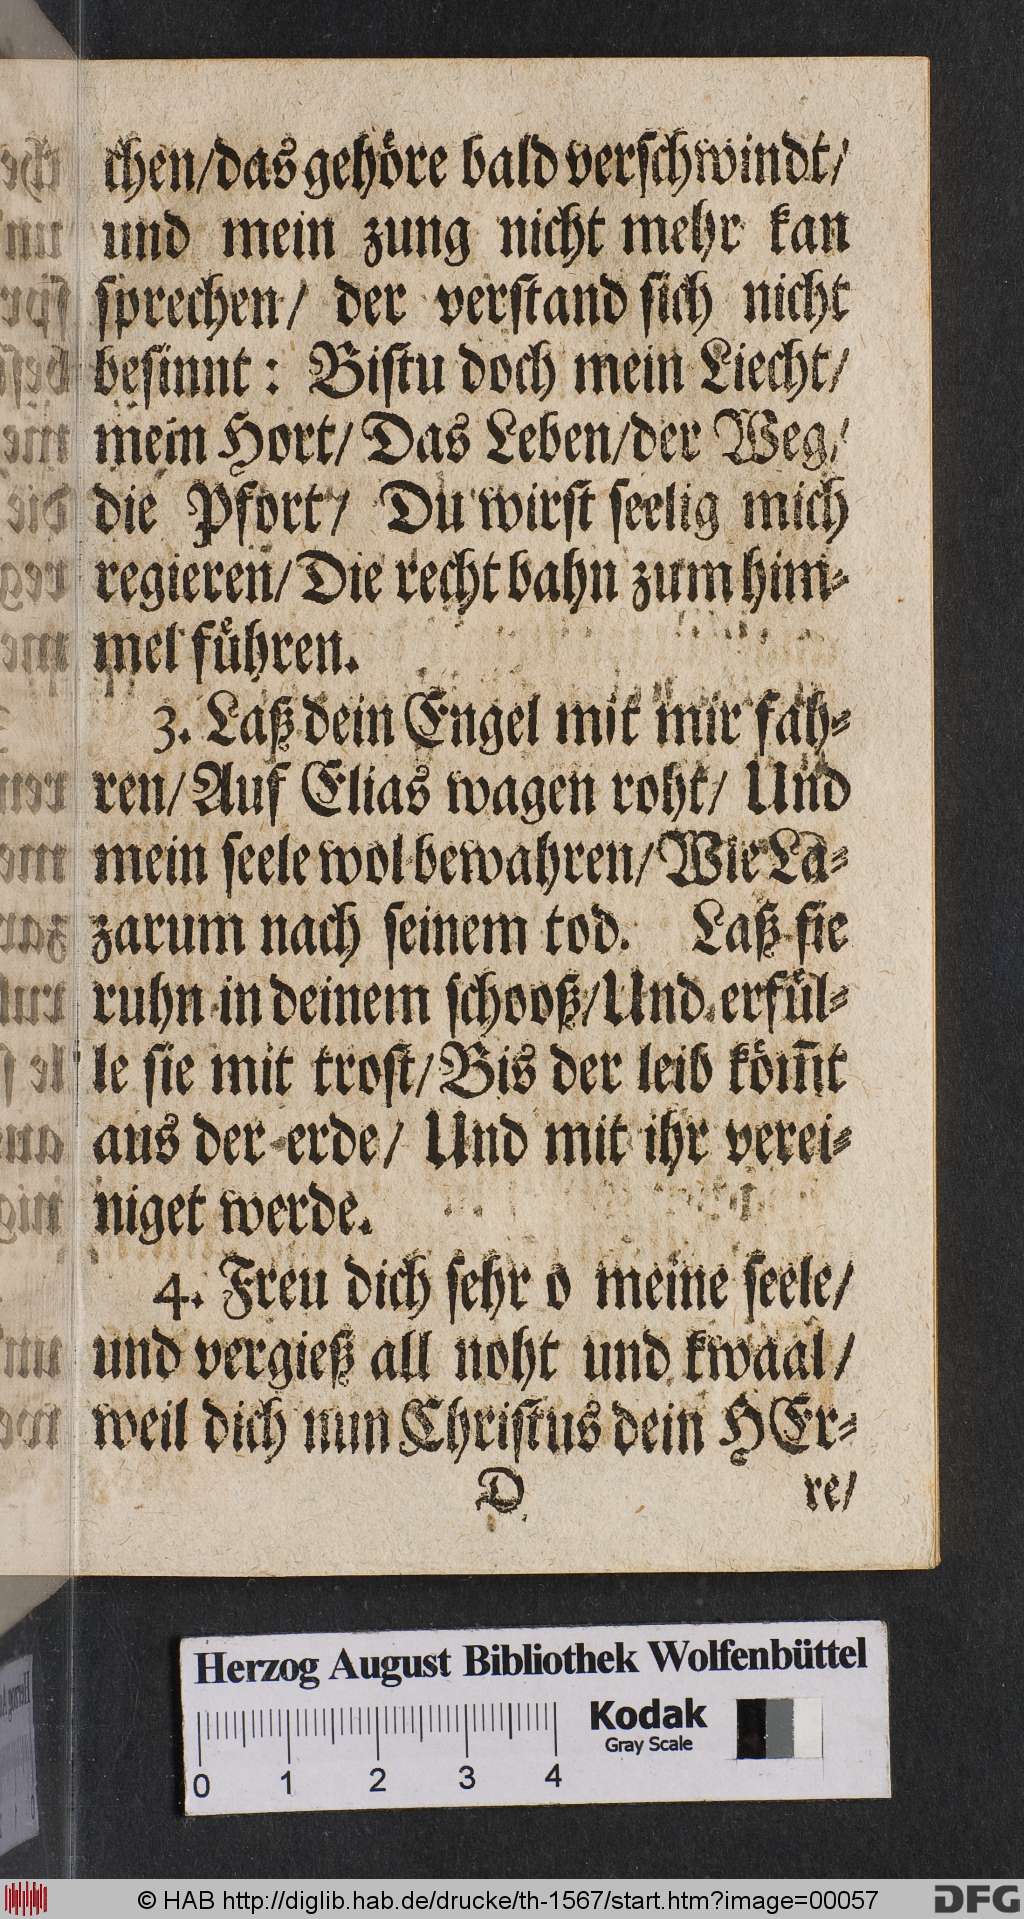 chen/das gehöre bald verschwindt/
und mein zung nicht mehr kan
sprechen/ der verstand sich nicht
besinnt: Bistu doch mein Liecht/
mein Hort/ Das Leben/der Weg/
die Pfort/ Du wirst seelig mich
regieren/ Die recht bahn zum him-
mel führen.
3. Laß dein Engel mit mir fah-
ren/ Auf Elias wagen roht/ Und
mein seele wol bewahren/ Wie La-
zarum nach seinem tod. Laß sie
ruhn in deinem schooß/ Und erfül-
le sie mit trost/ Bis der leib köm̃t
aus der erde/ Und mit ihr verei-
niget werde.
4. Freu dich sehr o meine seele/
und vergieß all noht und kwaal/
weil dich nun Christus dein HEr-
D re/
Herzog August Bibliothek Wolfenbüttel
Kodak
Gray Scale
0 1 2 3 4
© HAB http://diglib.hab.de/drucke/th-1567/start.htm?image=00057
DFG